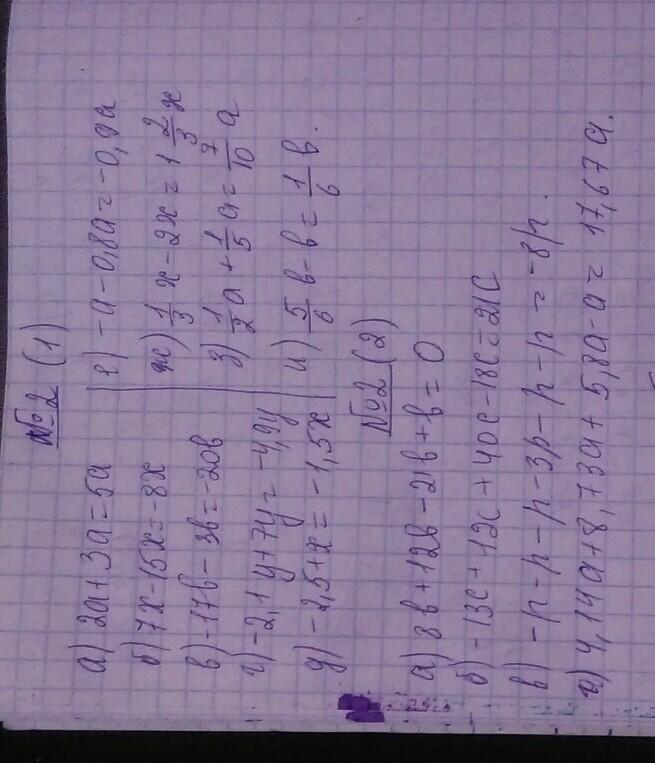 №2 (1)
а) 2a+3a=5a
б) 7x-15x=-8x
в) -17b-3b=-20b
г) -2,1y+7y=-4,9y
д) -2,5+x=-1,5x
е) -a-0,8a=-0,9a
ж) 1/3 x-2x=1 2/3 x
з) 1/2 a+1/5 a=7/10 a
и) 5/6 b-b=1/6 b.
№2 (2)
а) 8b+12b-21b+b=0
б) -13c+12c+40c-18c=21c
в) -p-p-p-3p-p-p=-8p.
г) 4,14a+8,73a+5,8a-a=17,67a.